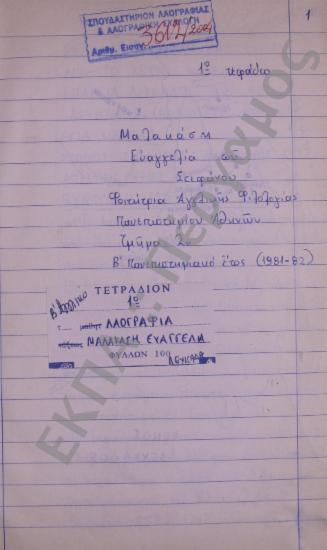 1
ΣΠΟΥΔΑΣΤΗΡΙΟΝ ΛΑΟΓΡΑΦΙΑΣ
& ΛΑΟΓΡΑΦΙΚΗ ΣΥΛΛΟΓΗ
Αριθμ. Εισαγ.
1ο
Μαλακάση
Εὐαγγελία τοῦ
Στεφάνου
Φοιτήτρια Ἀγγλικῆς Φιλολογίας
Πανεπιστημίου Ἀθηνῶν
Τμῆμα 2ο
Β' Πανεπιστημιακό Ἔτος (1981-82)
ΤΕΤΡΑΔΙΟΝ
1ο
ΛΑΟΓΡΑΦΙΑ
ΜΑΛΑΚΑΣΗ ΕΥΑΓΓΕΛΙΑ
ΦΥΛΛΩΝ 100
ΕΚΠΑ - Πέργαμος